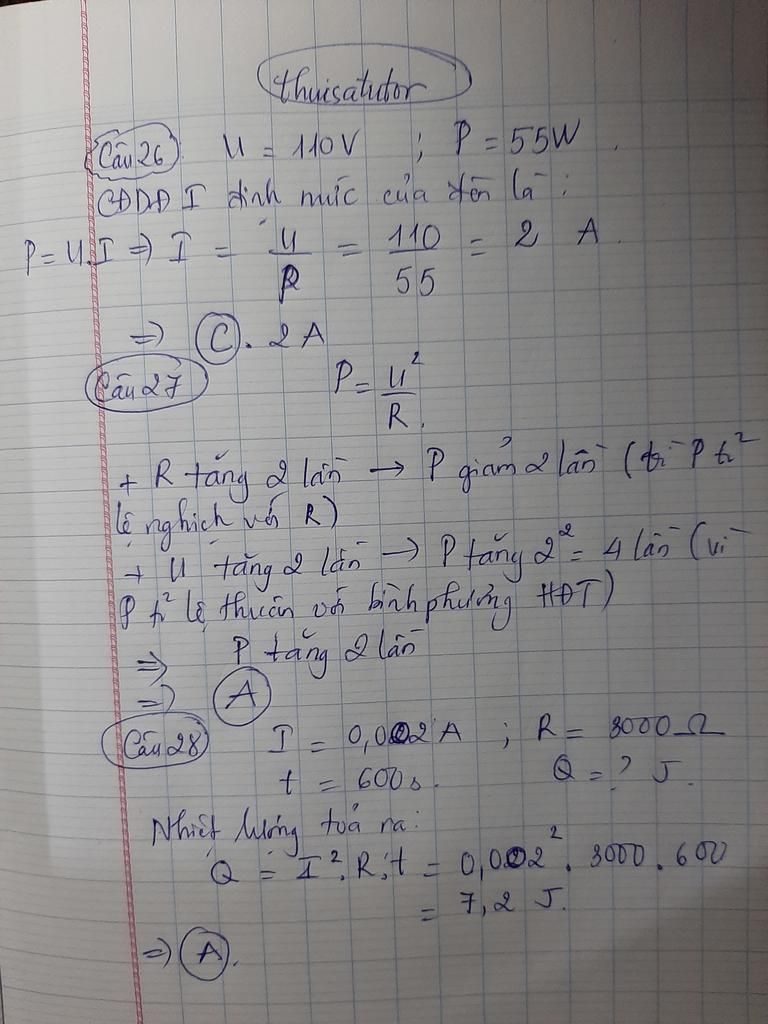 thuisatutor
Câu 26 U = 110V ; P = 55W.
CĐDĐ I định mức của đèn là:
P = U.I => I = U/P = 110/55 = 2 A.
=> C. 2A
Câu 27 P = U²/R.
+ R tăng 2 lần → P giảm 2 lần (vì P tỉ
lệ nghịch với R)
+ U tăng 2 lần → P tăng 2² = 4 lần (vì
P tỉ lệ thuận với bình phương HĐT)
=> P tăng 2 lần
=> A
Câu 28 I = 0,002 A ; R = 3000 Ω
t = 600s. Q = ? J.
Nhiệt lượng toả ra:
Q = I².R.t = 0,002². 3000. 600
= 7,2 J.
=> A.